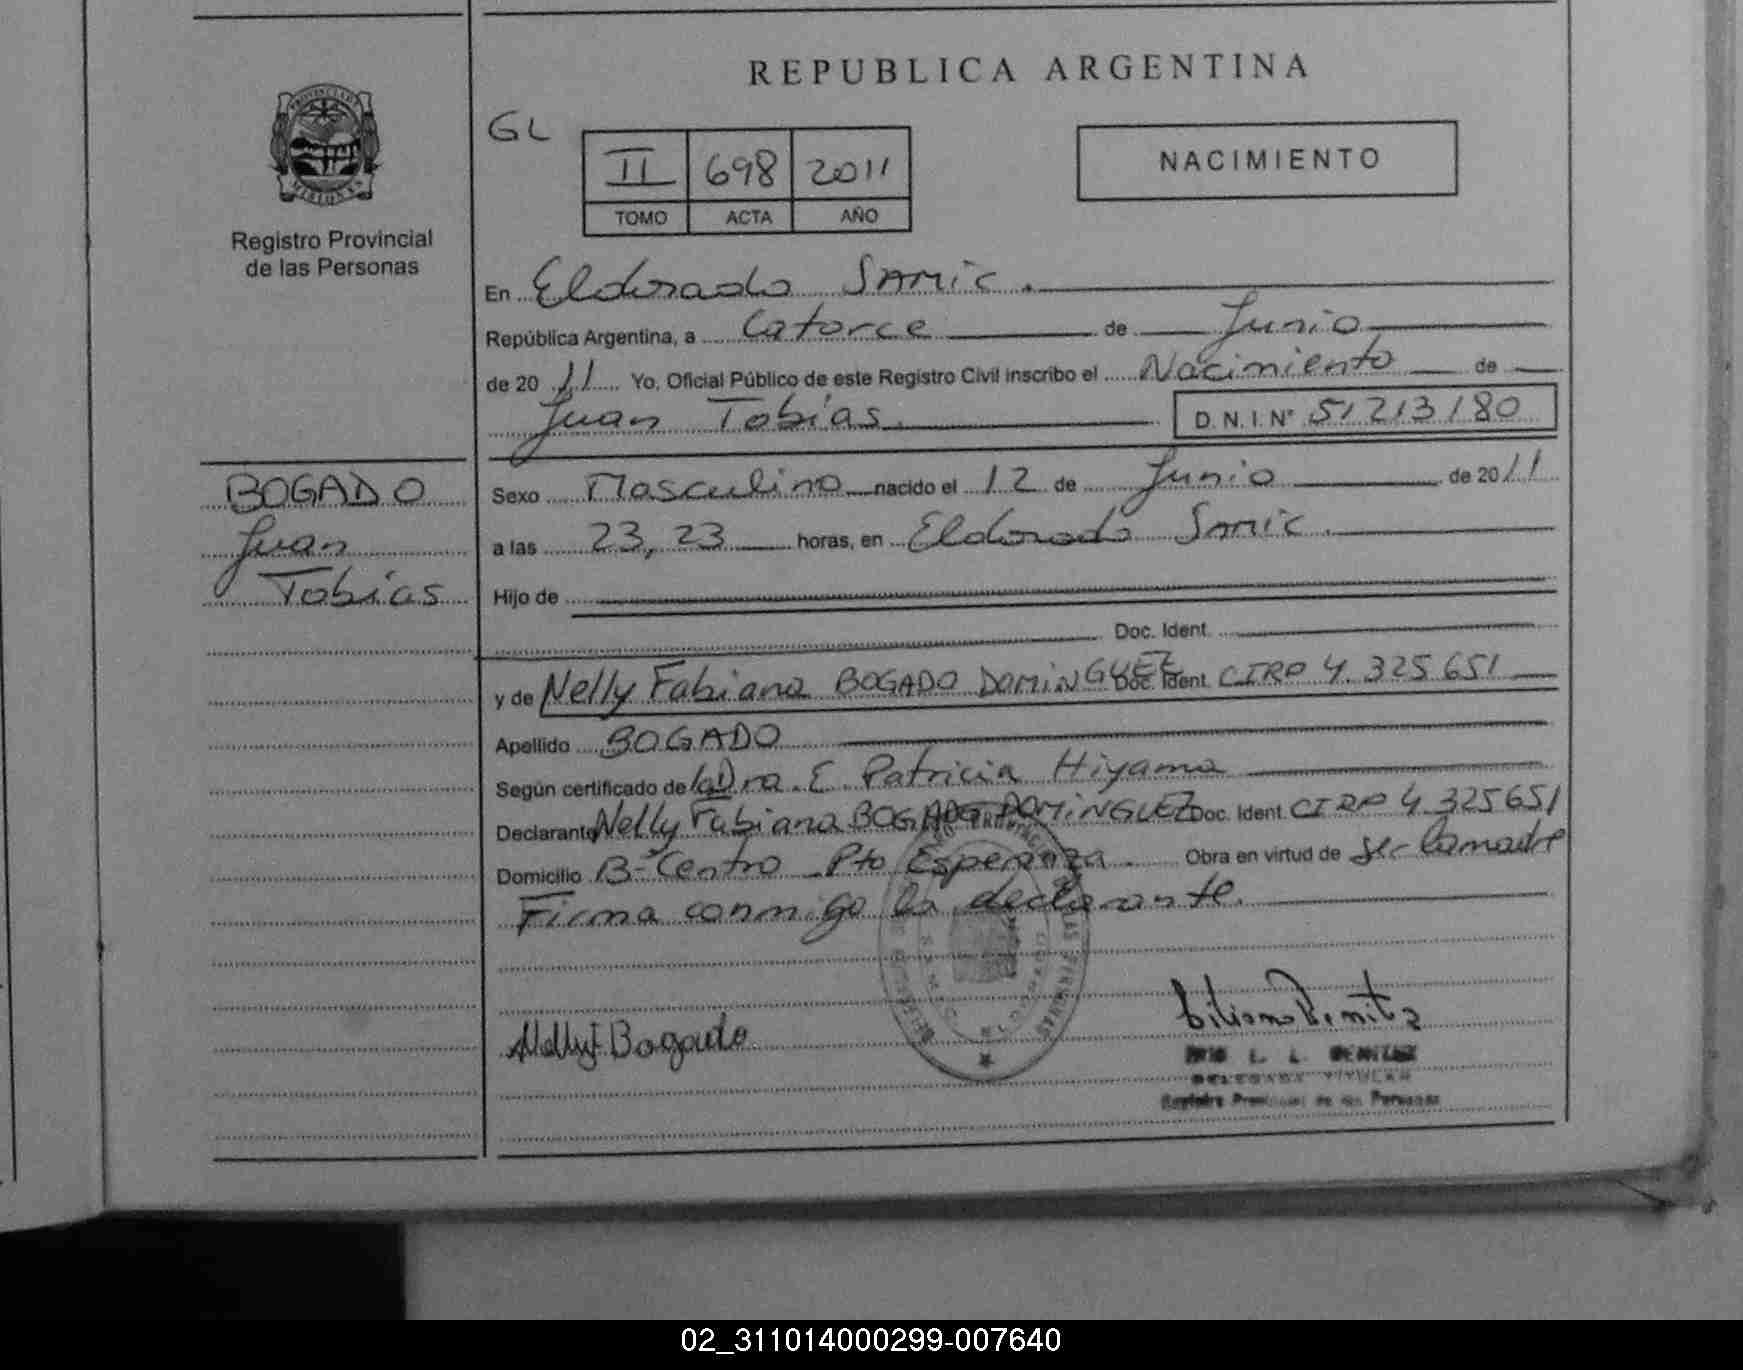 REPUBLICA ARGENTINA
PROVINCIA DE
MISIONES
Registro Provincial
de las Personas
GL
II 698 2011
TOMO ACTA AÑO
NACIMIENTO
En Eldorado SAMIC.
República Argentina, a Catorce de Junio
de 2011 Yo, Oficial Público de este Registro Civil inscribo el Nacimiento de
Juan Tobías. D.N.I. Nº 51213180
BOGADO
Juan
Tobías
Sexo Masculino nacido el 12 de Junio de 2011
a las 23,23 horas, en Eldorado Samic.
Hijo de
Doc. Ident.
y de Nelly Fabiana BOGADO DOMINGUEZ Doc. Ident. CIRP 4.325651
Apellido BOGADO
Según certificado de la Dra. E. Patricia Hiyama
Declarante Nelly Fabiana BOGADO DOMINGUEZ Doc. Ident. CIRP 4.325651
Domicilio B- Centro Pto Esperanza. Obra en virtud de ser la madre
Firma conmigo la declarante.
Nelly F Bogado
L. L. BENITEZ
DELEGADA TITULAR
Registro Provincial de las Personas
02_311014000299-007640